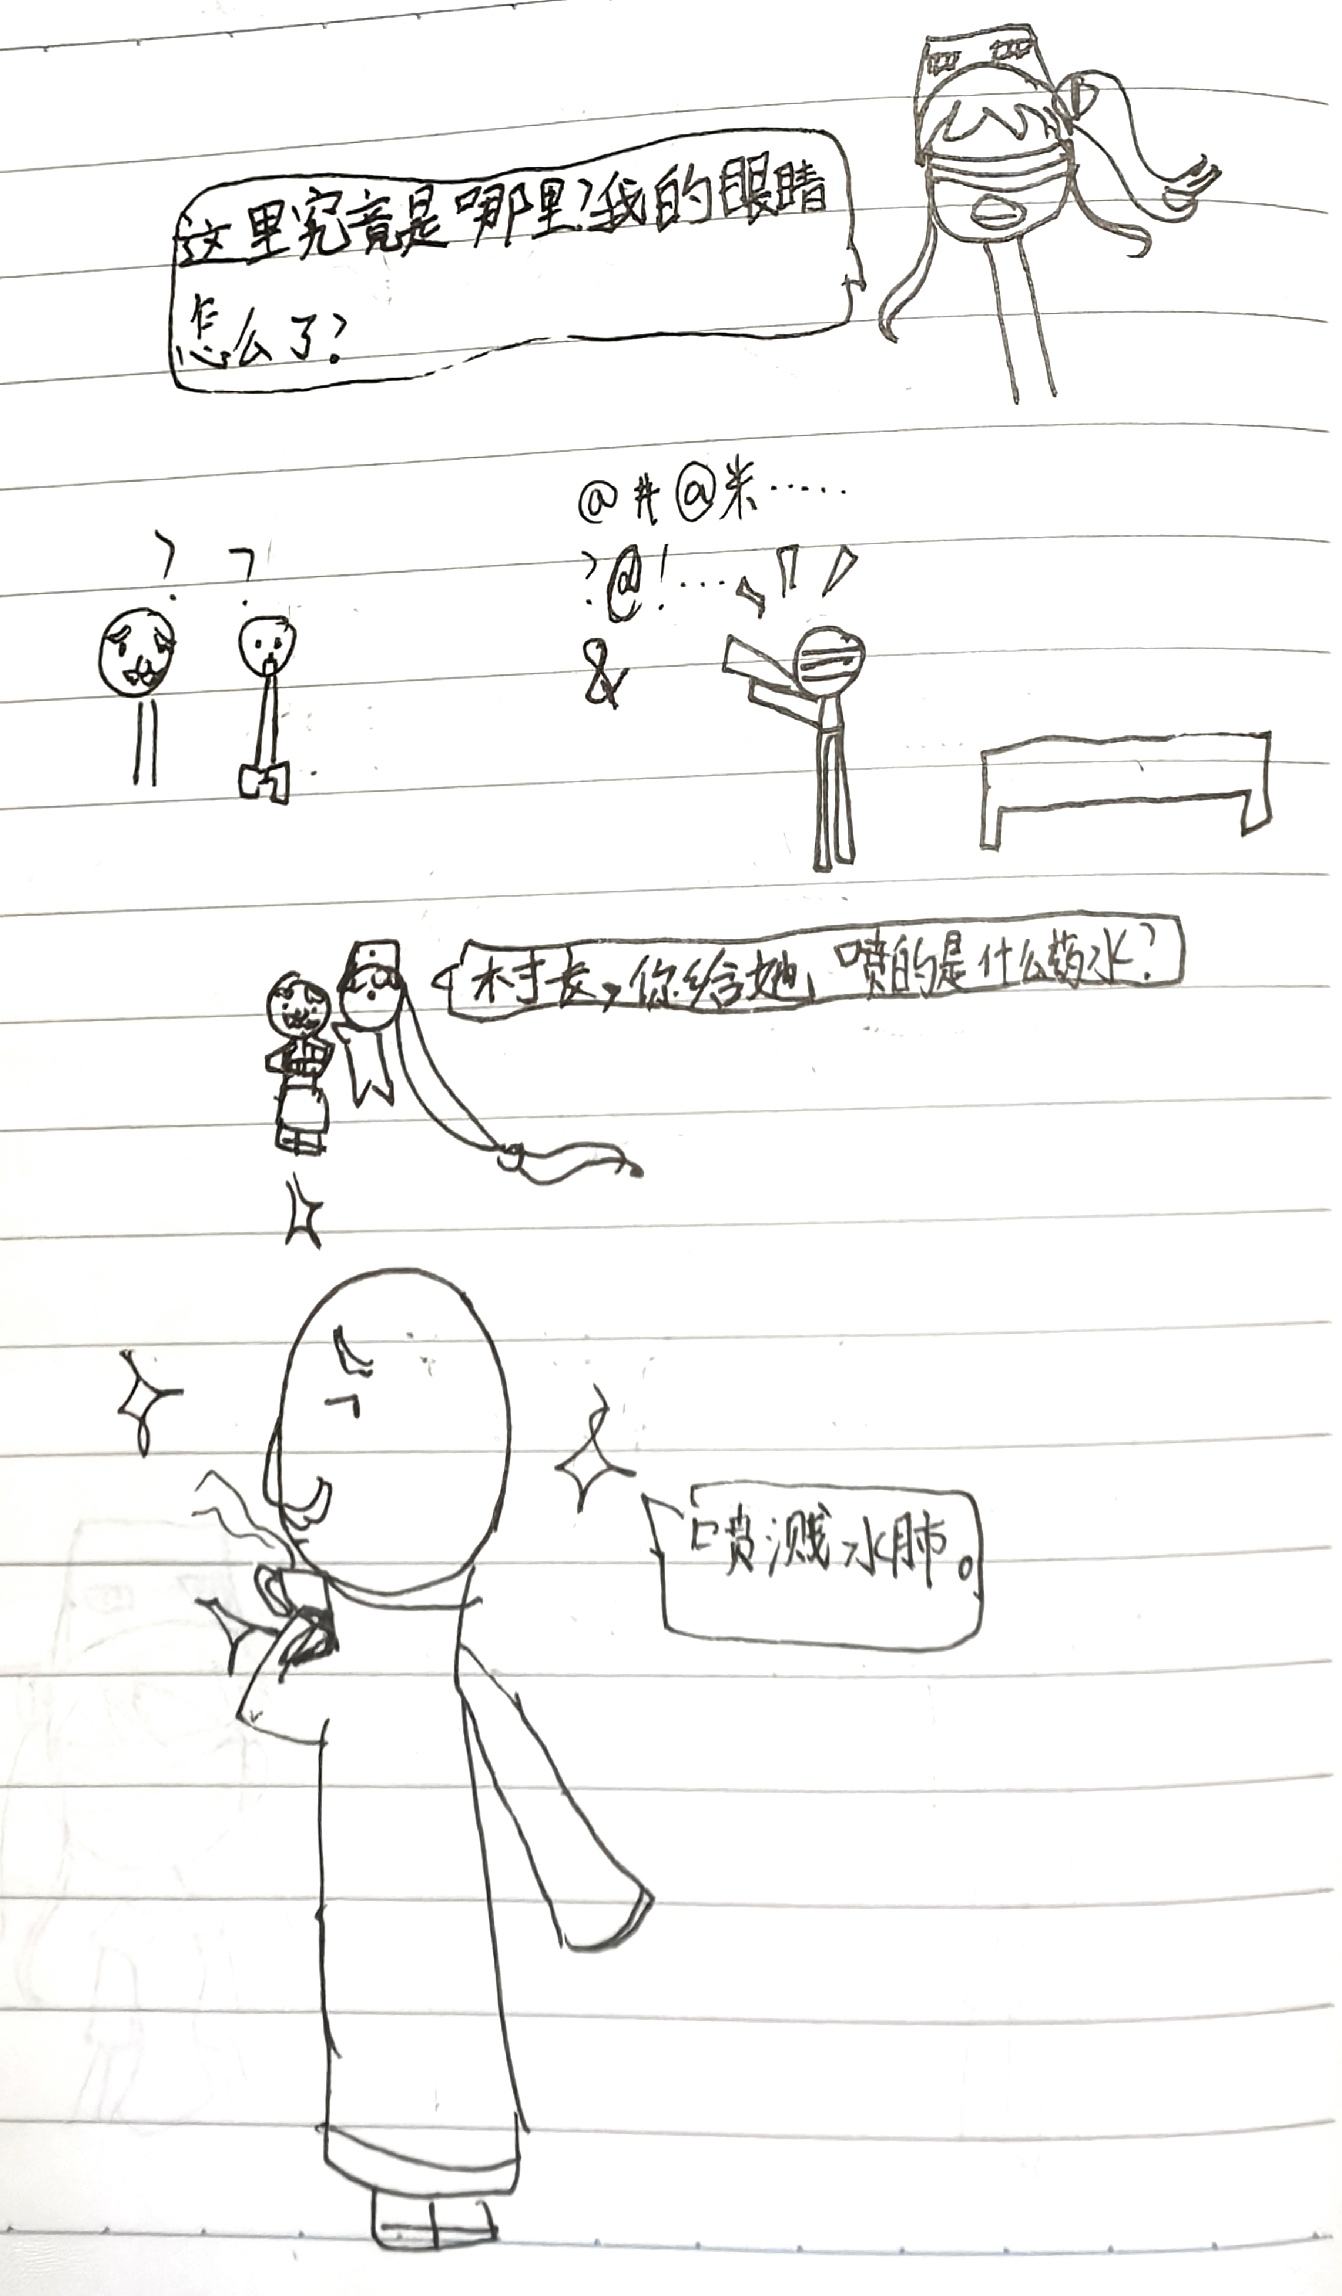 这里究竟是哪里？我的眼睛
怎么了？
？ ？
@#@米……
？@！……
&
村长，你给她喷的是什么药水？
喷溅水肺。